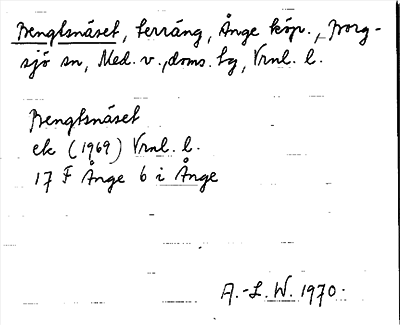 Bengtsnäset, terräng, Ånge köp., Borg-
sjö sn, Med. v., doms. tg, Vrnl. l.
Bengtsnäset
ek (1969) Vrnl. l.
17 F Ånge 6 i Ånge
A.-L. W. 1970.